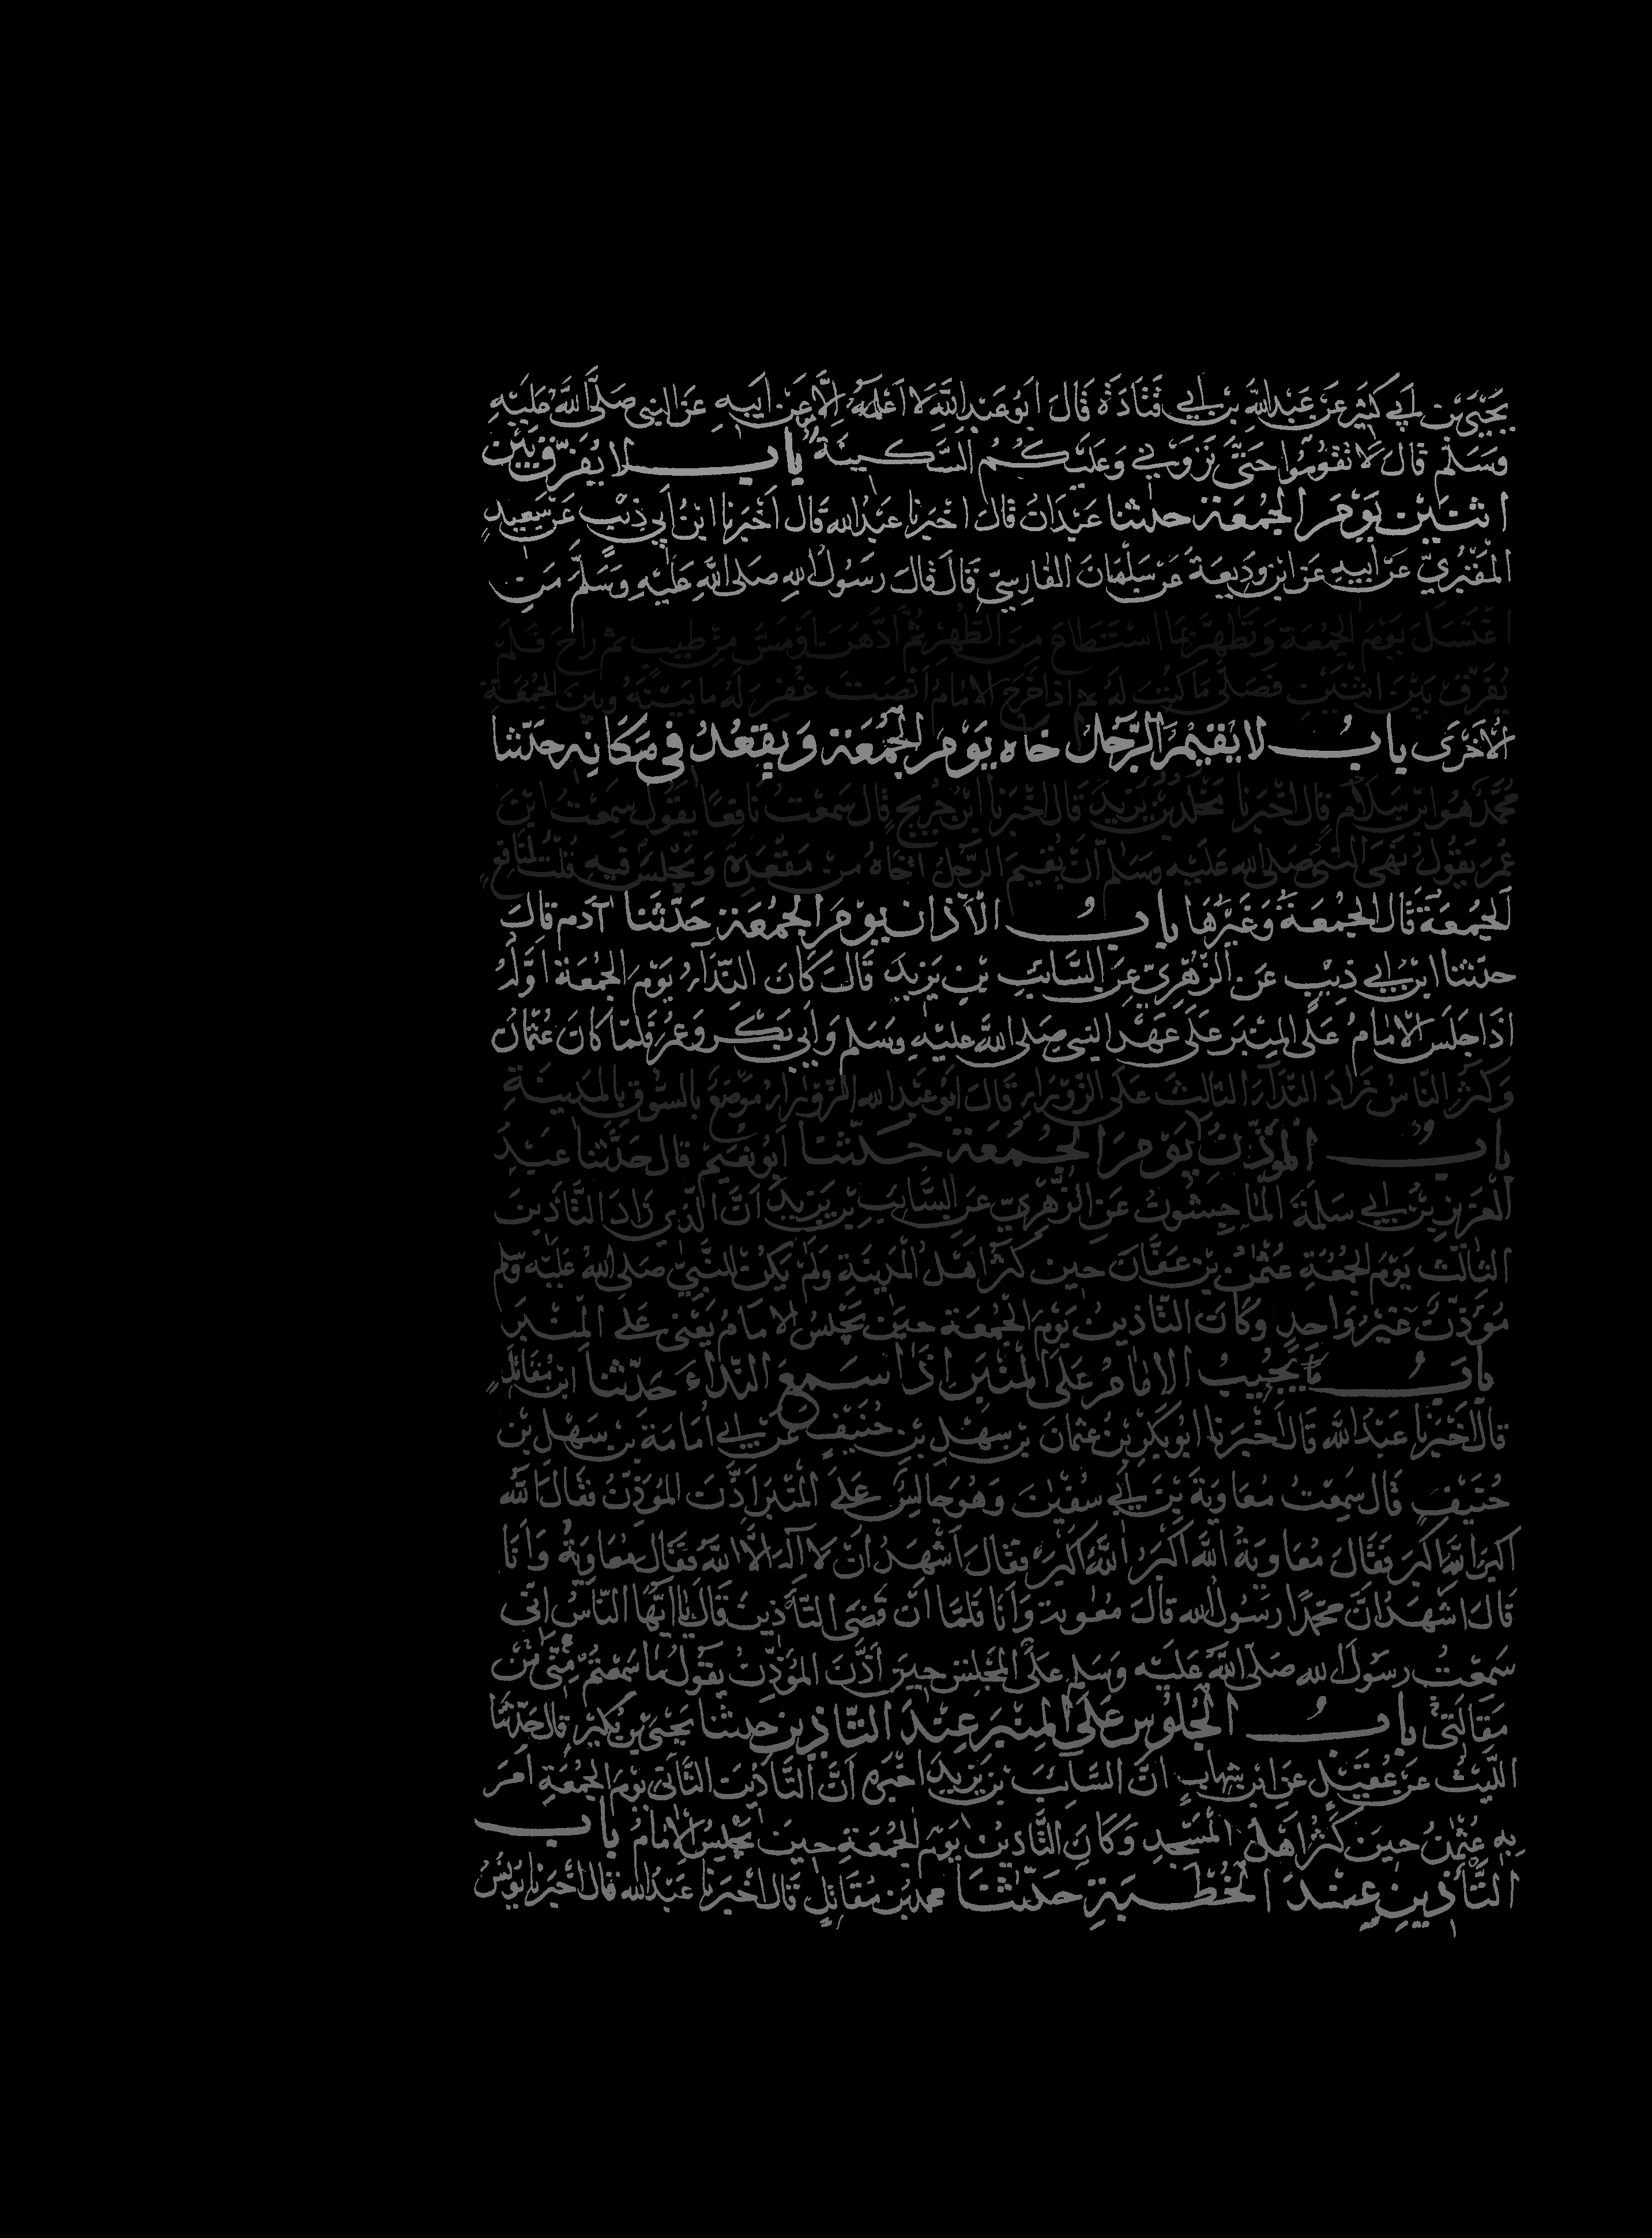 يَحْيَى بْنِ أَبِي كَثِيرٍ عَنْ عَبْدِ اللَّهِ بْنِ أَبِي قَتَادَةَ قَالَ أَبُو عَبْدِ اللَّهِ لَا أَعْلَمُهُ إِلَّا عَنْ أَبِيهِ عَنِ النَّبِيِّ صَلَّى اللَّهُ عَلَيْهِ
وَسَلَّمَ قَالَ لَا تَقُومُوا حَتَّى تَرَوْنِي وَعَلَيْكُمُ السَّكِينَةُ بَابٌ لَا يُفَرِّقُ بَيْنَ
اثْنَيْنِ يَوْمَ الْجُمُعَةِ حدثنا عَبْدَانُ قَالَ أَخْبَرَنَا عَبْدُ اللَّهِ قَالَ أَخْبَرَنَا ابْنُ أَبِي ذِئْبٍ عَنْ سَعِيدٍ
الْمَقْبُرِيِّ عَنْ أَبِيهِ عَنِ ابْنِ وَدِيعَةَ عَنْ سَلْمَانَ الْفَارِسِيِّ قَالَ قَالَ رَسُولُ اللَّهِ صَلَّى اللَّهُ عَلَيْهِ وَسَلَّمَ مَنِ
اغْتَسَلَ يَوْمَ الْجُمُعَةِ وَتَطَهَّرَ بِمَا اسْتَطَاعَ مِنَ الطُّهْرِ ثُمَّ ادَّهَنَ أَوْ مَسَّ مِنْ طِيبٍ ثم رَاحَ فَلَمْ
يُفَرِّقْ بَيْنَ اثْنَيْنِ فَصَلَّى مَا كُتِبَ لَهُ ثم اذا خَرَجَ الامامُ أَنْصَتَ غُفِرَ لَهُ مَا بَيْنَهُ وبين الْجُمُعَةِ
الْأُخْرَى بَابٌ لَا يُقِيمُ الرَّجُلُ أَخَاهُ يَوْمَ الْجُمُعَةِ وَيَقْعُدُ فِي مَكَانِهِ حَدَّثَنَا
مُحَمَّدٌ هُوَ ابْنُ سَلَامٍ قَالَ أَخْبَرَنَا مَخْلَدُ بْنُ يَزِيدَ قَالَ أَخْبَرَنَا ابْنُ جُرَيْجٍ قَالَ سَمِعْتُ نَافِعًا يَقُولُ سَمِعْتُ ابْنَ
عُمَرَ يَقُولُ نَهَى النَّبِيُّ صَلَّى اللَّهُ عَلَيْهِ وَسَلَّمَ أَنْ يُقِيمَ الرَّجُلُ أَخَاهُ مِنْ مَقْعَدِهِ وَيَجْلِسَ فِيهِ قُلْتُ لِنَافِعٍ
الْجُمُعَةَ قَالَ الْجُمُعَةَ وَغَيْرَهَا بَابُ الْأَذَانِ يَوْمَ الْجُمُعَةِ حَدَّثَنَا آدَمُ قَالَ
حَدَّثَنَا ابْنُ أَبِي ذِئْبٍ عَنِ الزُّهْرِيِّ عَنِ السَّائِبِ بْنِ يَزِيدَ قَالَ كَانَ النِّدَاءُ يَوْمَ الْجُمُعَةِ أَوَّلُهُ
إِذَا جَلَسَ الْإِمَامُ عَلَى الْمِنْبَرِ عَلَى عَهْدِ النبي صَلَّى اللَّهُ عَلَيْهِ وَسَلَّمَ وَأَبِي بَكْرٍ وَعُمَرَ فَلَمَّا كَانَ عُثْمَانُ
وَكَثُرَ النَّاسُ زَادَ النِّدَاءَ الثَّالِثَ عَلَى الزَّوْرَاءِ قَالَ أَبُو عَبْدِ اللَّهِ الزَّوْرَاءُ مَوْضِعٌ بِالسُّوقِ بِالْمَدِينَةِ
بَابُ الْمُؤَذِّنِ يَوْمَ الْجُمُعَةِ حَدَّثَنَا أَبُو نُعَيْمٍ قَالَ حَدَّثَنَا عَبْدُ
الْعَزِيزِ بْنُ أَبِي سَلَمَةَ الْمَاجِشُونُ عَنِ الزُّهْرِيِّ عَنِ السَّائِبِ بْنِ يَزِيدَ أَنَّ الَّذِي زَادَ التَّأْذِينَ
الثَّالِثَ يَوْمَ الْجُمُعَةِ عُثْمٰنُ بْنُ عَفَّانَ حِينَ كَثُرَ أَهْلُ الْمَدِينَةِ وَلَمْ يَكُنْ لِلنَّبِيِّ صَلَّى اللَّهُ عَلَيْهِ وَسَلَّمَ
مُؤَذِّنٌ غَيْرُ وَاحِدٍ وَكَانَ التَّأْذِينُ يَوْمَ الْجُمُعَةِ حِينَ يَجْلِسُ الْإِمَامُ يَعْنِي عَلَى الْمِنْبَرِ
بَابُ مَا يُجِيبُ الْإِمَامُ عَلَى الْمِنْبَرِ إِذَا سَمِعَ النِّدَاءَ حَدَّثَنَا ابْنُ مُقَاتِلٍ
قَالَ أَخْبَرَنَا عَبْدُ اللَّهِ قَالَ أَخْبَرَنَا أَبُو بَكْرِ بْنُ عُثْمَانَ بْنِ سَهْلِ بْنِ حُنَيْفٍ عَنْ أَبِي أُمَامَةَ بْنِ سَهْلِ بْنِ
حُنَيْفٍ قَالَ سَمِعْتُ مُعَاوِيَةَ بْنَ أَبِي سُفْيٰنَ وَهُوَ جَالِسٌ عَلَى الْمِنْبَرِ أَذَّنَ الْمُؤَذِّنُ فَقَالَ اللَّهُ
أَكْبَرُ اللَّهُ أَكْبَرُ فَقَالَ مُعَاوِيَةُ اللَّهُ أَكْبَرُ اللَّهُ أَكْبَرُ فَقَالَ أَشْهَدُ أَنْ لَا إِلَهَ إِلَّا اللَّهُ فَقَالَ مُعَاوِيَةُ وَأَنَا
قَالَ أَشْهَدُ أَنَّ مُحَمَّدًا رَسُولُ اللَّهِ قَالَ مُعٰوِيَةُ وَأَنَا فَلَمَّا أَنْ قَضَى التَّأْذِينَ قَالَ يَا أَيُّهَا النَّاسُ إِنِّي
سَمِعْتُ رَسُولَ اللَّهِ صَلَّى اللَّهُ عَلَيْهِ وَسَلَّمَ عَلَى الْمَجْلِسِ حِينَ أَذَّنَ الْمُؤَذِّنُ يَقُولُ مَا سَمِعْتُمْ مِنِّي مِنْ
مَقَالَتِي بَابُ الْجُلُوسِ عَلَى الْمِنْبَرِ عِنْدَ التَّأْذِينِ حدثنا يَحْيَى بْنُ بُكَيْرٍ قَالَ حَدَّثَنَا
اللَّيْثُ عَنْ عُقَيْلٍ عَنِ ابْنِ شِهَابٍ أَنَّ السَّائِبَ بْنَ يَزِيدَ أَخْبَرَهُ أَنَّ التَّأْذِينَ الثَّانِيَ يَوْمَ الْجُمُعَةِ أَمَرَ
بِهِ عُثْمٰنُ حِينَ كَثُرَ أَهْلُ الْمَسْجِدِ وَكَانَ التَّأْذِينُ يَوْمَ الْجُمُعَةِ حِينَ يَجْلِسُ الْإِمَامُ بَابُ
التَّأْذِينِ عِنْدَ الْخُطْبَةِ حَدَّثَنَا محمد بْنُ مُقَاتِلٍ قَالَ أَخْبَرَنَا عَبْدُ اللَّهِ قَالَ أَخْبَرَنَا يُونُسُ